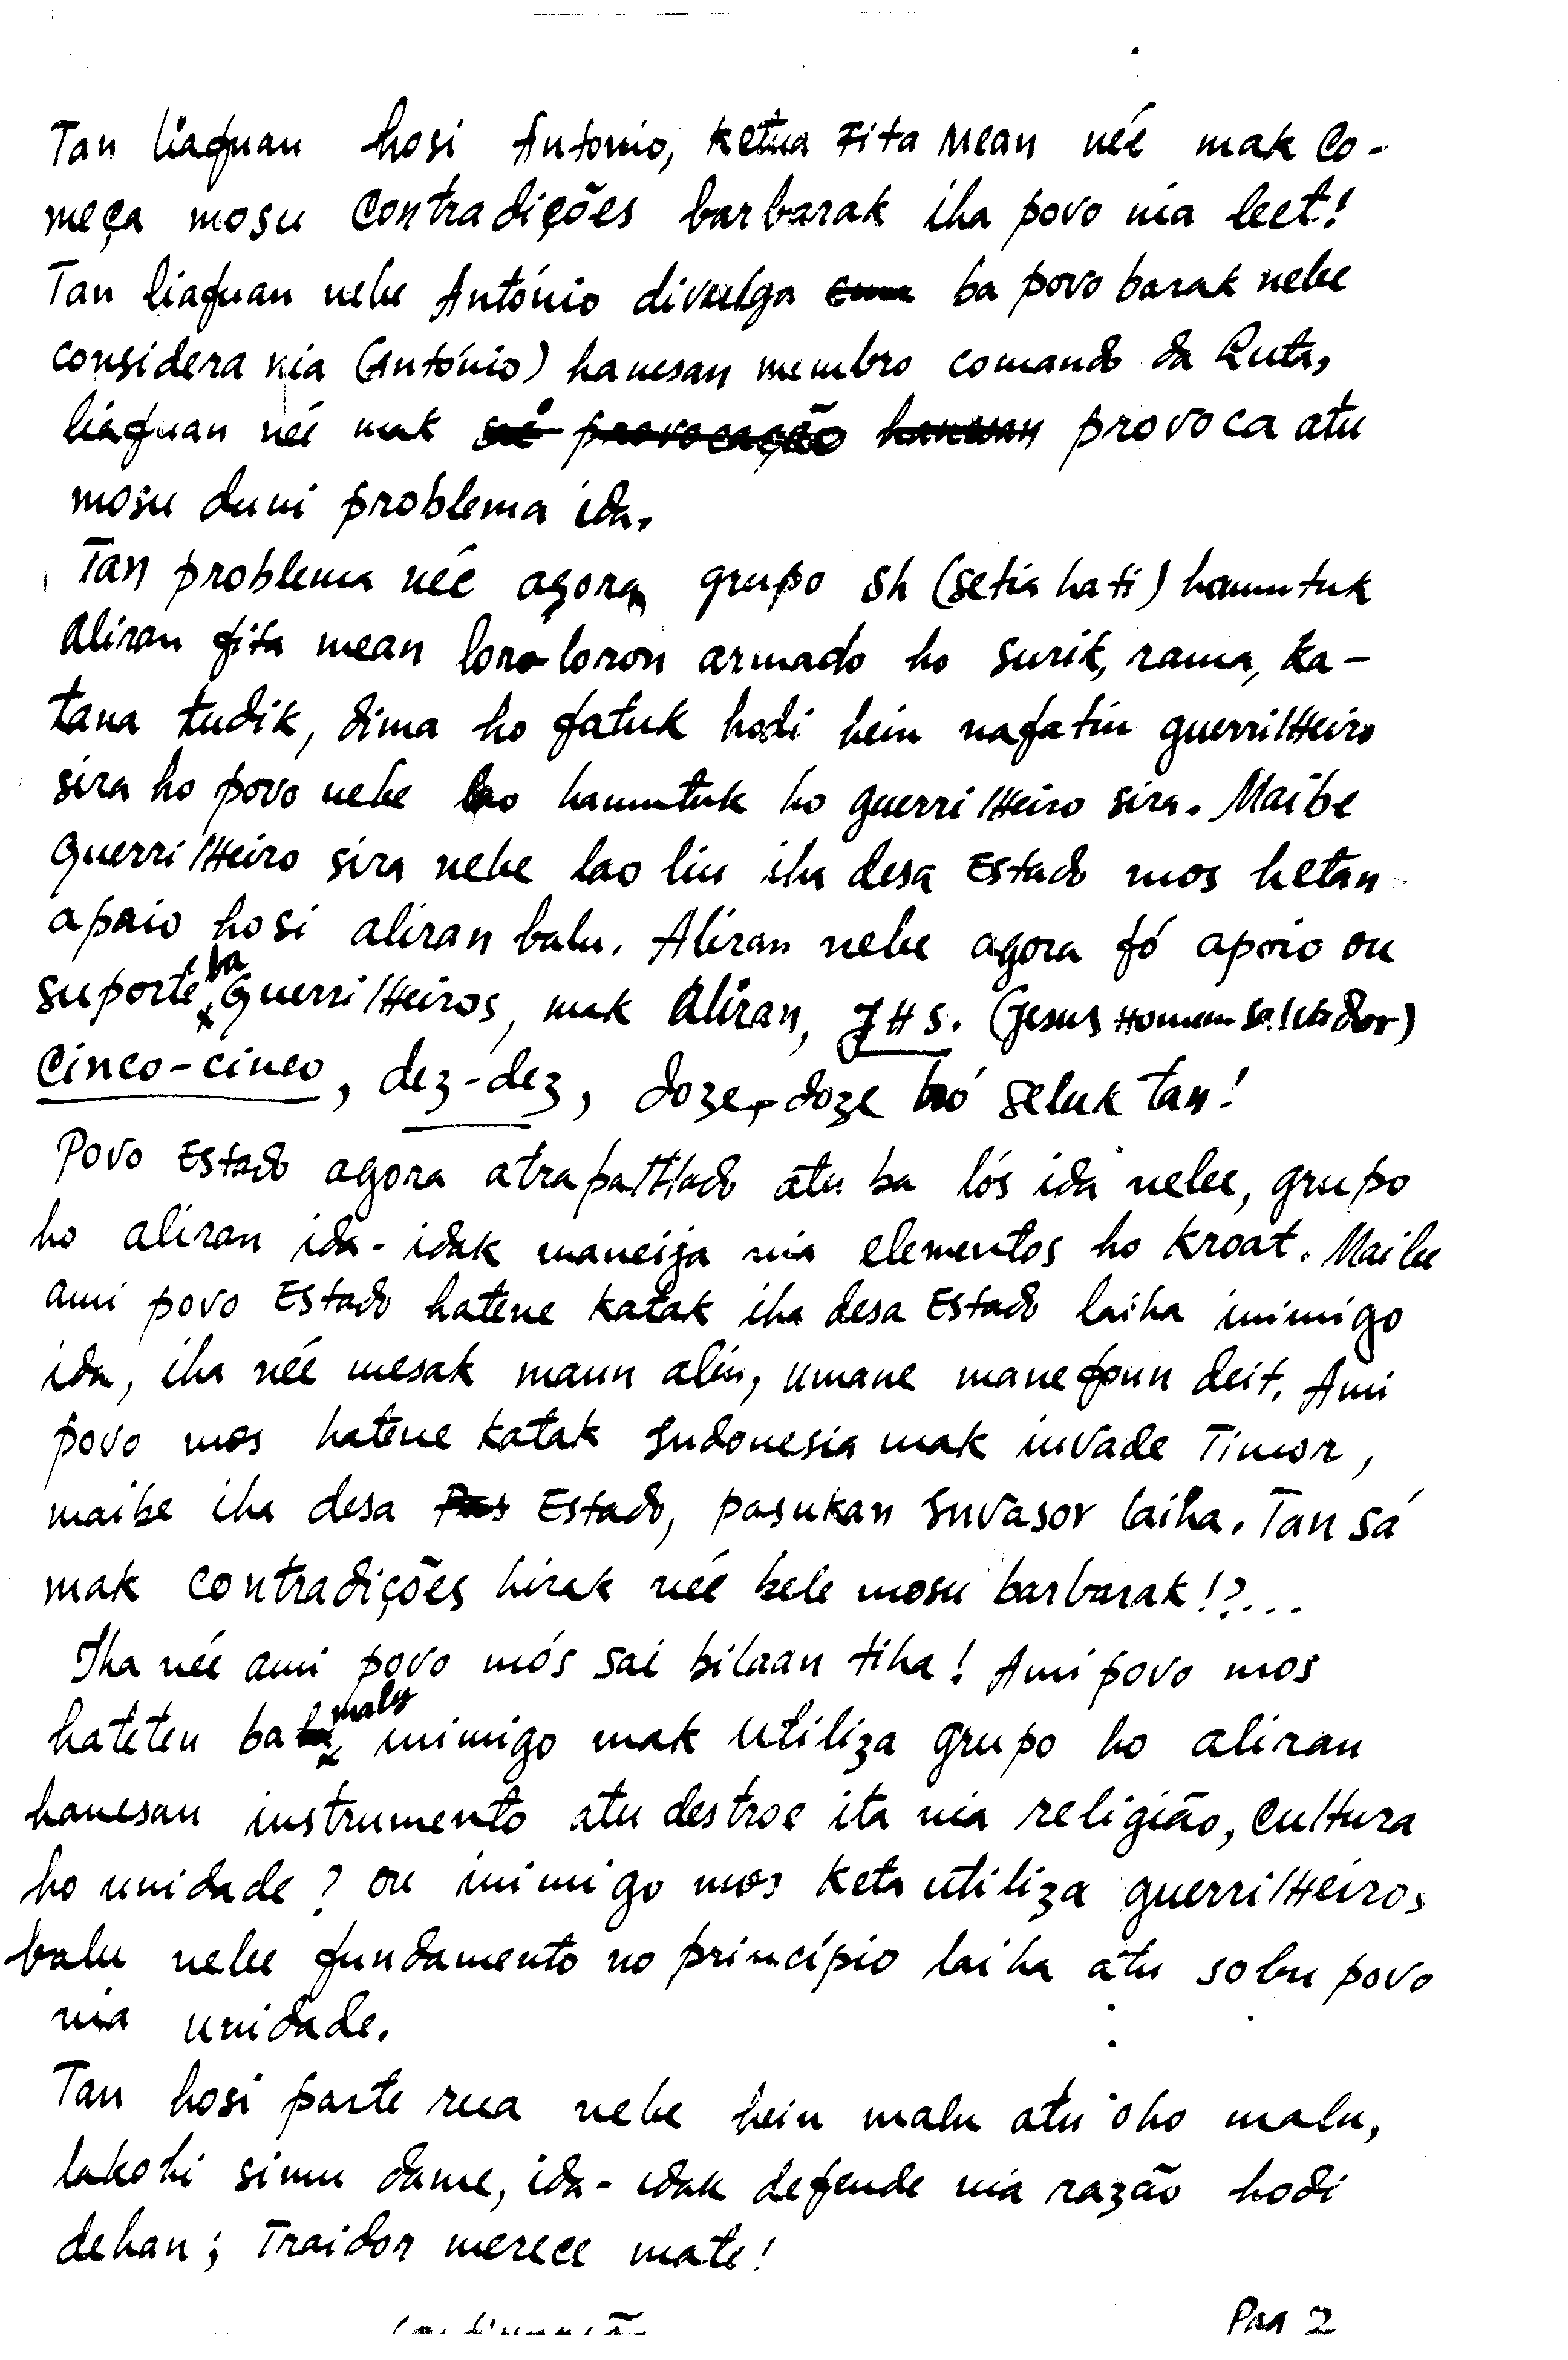 Tan liafuan hosi António, ketua Fita Mean néé mak co-
meça mosu contradições barbarak iha povo nia leet!
Tan liafuan nebe António divulga ba povo barak nebe
considera nia (António) hanesan membro comando da Luta,
liafuan néé mak provoca atu
mosu duni problema ida.
Tan problema néé agora grupo SH (setia hati) hamutuk
aliran fita mean loro-loron armado ho surik, rama, ka-
tana tudik, dima ho fatuk hodi hein nafatin guerrilheiro
sira ho povo nebe lao hamutuk ho guerrilheiro sira. Maibe
guerrilheiro sira nebe lao liu iha desa Estado mos hetan
apoio hosi aliran balu. Aliran nebe agora fó apoio ou
suporte ba guerrilheiros, mak aliran, JHS. (Jesus Homem Salvador)
cinco-cinco, dez-dez, doze-doze hó seluk tan!
Povo Estado agora atrapalhado atu ba lós ida nebe, grupo
ho aliran ida-idak maneija nia elementos ho kroat. Maibe
ami povo Estado hatene katak iha desa Estado laiha inimigo
ida, iha néé mesak maun alin, umane manefoun deit. Ami
povo mos hatene katak Indonesia mak invade Timor,
maibe iha desa Estado, pasukan Invasor laiha. Tan sá
mak contradições hirak néé bele mosu barbarak!?...
Iha néé ami povo mós sai bilaan tiha! Ami povo mos
hateten ba malu inimigo mak utiliza grupo ho aliran
hanesan instrumento atu destroe ita nia religião, cultura
ho unidade? ou inimigo mos keta utiliza guerrilheiros
balu nebe fundamento no princípio laiha atu sobu povo
nia unidade.
Tan hosi parte rua nebe hein malu atu oho malu,
lakohi simu dame, ida-idak defende nia razão hodi
dehan; Traidor merece mate!
Pag 2